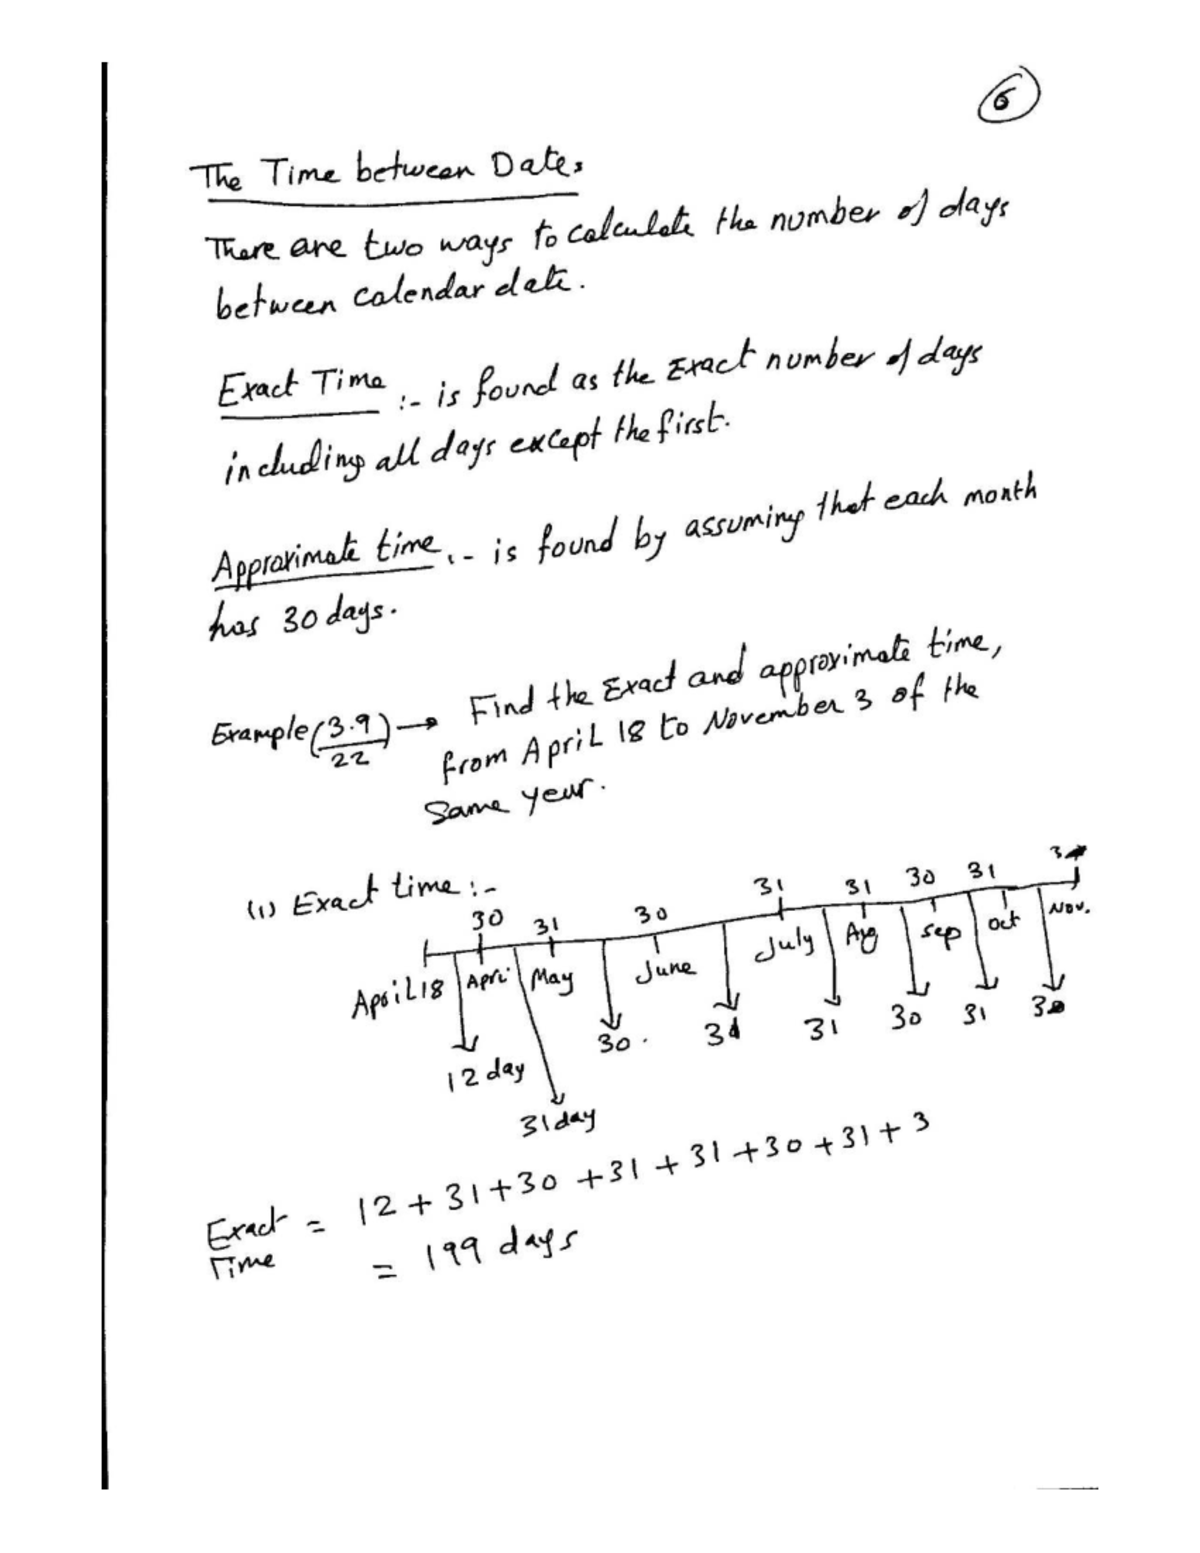 6
The Time between Dates
There are two ways to calculate the number of days
between calendar date.
Exact Time :- is found as the Exact number of days
including all days except the first.
Approximate time :- is found by assuming that each month
has 30 days.
Example (3.9)/22 → Find the Exact and approximate time,
from April 18 to November 3 of the
Same year.
(1) Exact time :-
30 31 30 31 31 30 31 3
April 18 April May June July Aug Sep Oct Nov.
12 day 31 day 30. 31 31 30 31 3
Exact Time = 12 + 31 + 30 + 31 + 31 + 30 + 31 + 3
= 199 days